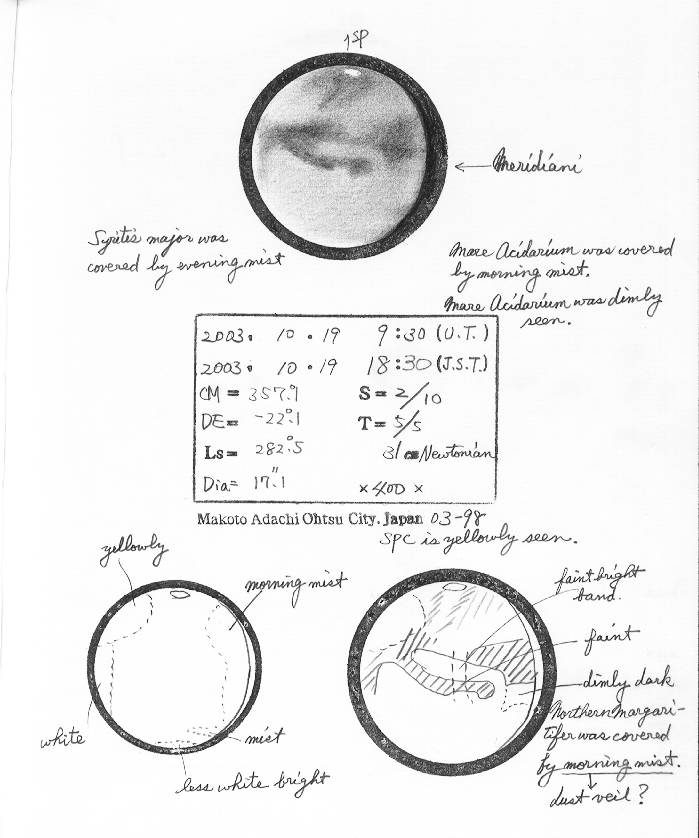 ↑SP
← Meridiani
Syrtis major was
covered by evening mist
Mare Acidarium was covered
by morning mist.
Mare Acidarium was dimly
seen.
2003. 10 . 19 9:30 (U.T.)
2003. 10 . 19 18:30 (J.S.T.)
CM = 357.°9 S = 2/10
DE = -22.°1 T = 5/5
Ls = 282.°5 31 cm Newtonian
Dia = 17.″1 ×400 ×
Makoto Adachi Ohtsu City. Japan 03-98
SPC is yellowly seen.
yellowly
morning mist
white
mist
less white bright
faint bright
band.
faint
dimly dark
Northern Margari-
tifer was covered
by morning mist.
↓
dust veil?